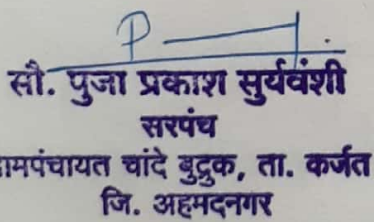 सौ. पुजा प्रकाश सुर्यवंशी
सरपंच
ामपंचायत चांदे बुद्रुक, ता. कर्जत
जि. अहमदनगर